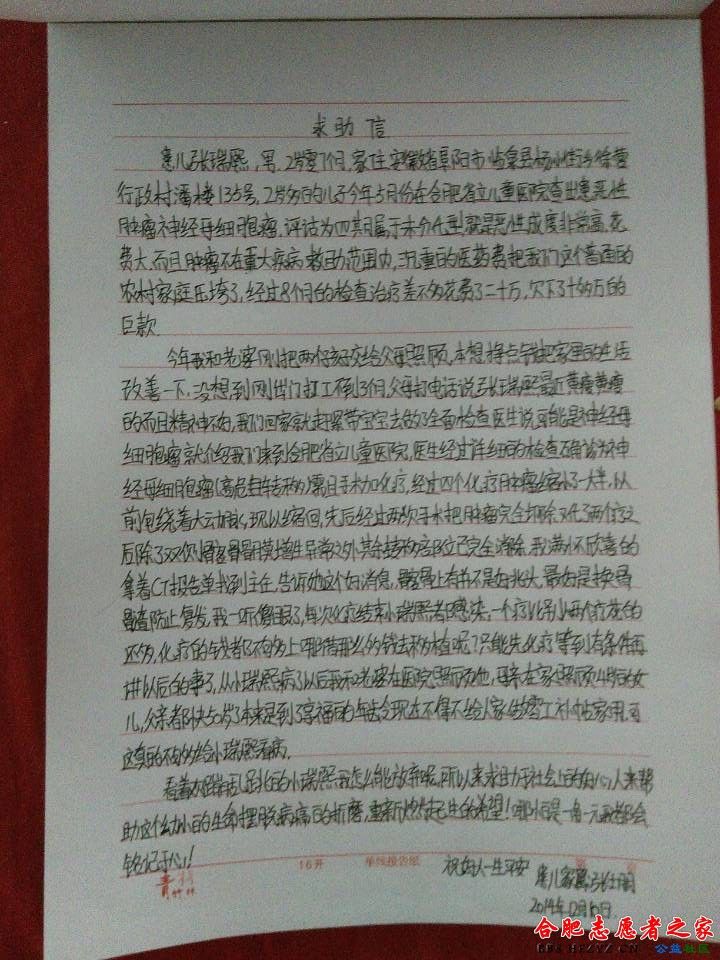 求助信
患儿张瑞熙，男，2岁零7个月，家住安徽省阜阳市临泉县杨小街乡徐营
行政村潘楼135号，2岁多的儿子今年5月份在合肥省立儿童医院查出患恶性
肿瘤神经母细胞瘤，评估为四期属于未分化型就是恶性成度非常高，花
费大，而且肿瘤不在重大疾病救助范围内，沉重的医药费把我们这个普通的
农村家庭压垮了，经过8个月的检查治疗差不多花费了二十万，欠下了十多万的
巨款。
今年我和老婆刚把两个孩子交给父母照顾，本想挣点钱把家里的生活
改善一下，没想到刚出门打工不到3个月，父母打电话说张瑞熙最近黄瘦黄瘦
的而且精神不好，我们回家就赶紧带宝宝去做了全面检查医生说可能是神经母
细胞瘤就介绍我们来到合肥省立儿童医院，医生经过详细的检查确诊为神
经母细胞瘤(高危
转移)需且手术加化疗，经过四个化疗肿瘤缩小了一大半，从
前包绕着大动脉，现以缩回，先后经过两次手术把肿瘤完全切除，又化了两个疗之
后除了双侧髂骨骨膜增生异常之外，其余转移部位已完全消除，我满怀欣喜的
拿着CT报告单找到主任，告诉她这个好消息，髂骨上有并不是好兆头，最好是换骨
髓防止复发，我一听傻眼了，每次化疗结束小瑞熙都感染，一个疗比别人两个疗花的
还多，化疗的钱都不够多上哪借那么多钱去移植呢？只能先化疗等到有条件再
讲以后的事了，从小瑞熙病了以后我和老婆在医院照顾他，母亲在家照顾4岁的女
儿，父亲都快50岁了本来是到了享福的年龄令现在不得不给人家做零工补帖家用，可
这真的不够给小瑞熙看病。
看着
小瑞熙我怎么能放弃呢，所以来求助于社会上的好心人来帮
助这个幼小的生命摆脱病痛的折磨，重新燃起生的希望！哪怕是一角一元我都会
铭记于心！
祝好人一生平安
患儿家属：张士阁
2014年12月10日
青竹 16开 单线报告纸
合肥志愿者之家
BBS.HFZYZ.CN 公益社区